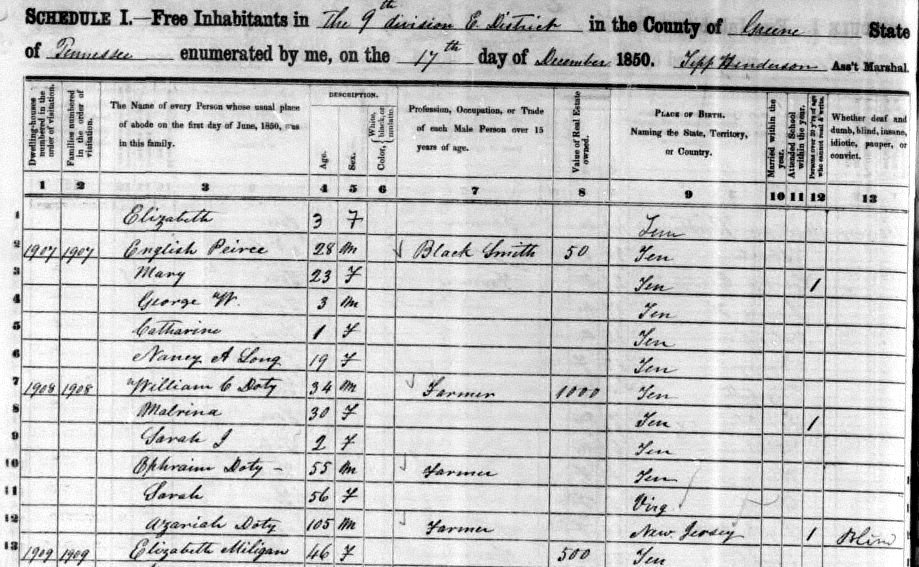 SCHEDULE I.—Free Inhabitants in The 9th division E. District in the County of Greene State
of Tennessee enumerated by me, on the 17th day of December 1850. Henderson Ass't Marshal.
Dwelling-houses numbered in the order of visitation.
Families numbered in the order of visitation.
The Name of every Person whose usual place of abode on the first day of June, 1850, was in this family.
DESCRIPTION.
Age.
Sex.
Color, { White, black, or mulatto.
Profession, Occupation, or Trade of each Male Person over 15 years of age.
Value of Real Estate owned.
PLACE OF BIRTH. Naming the State, Territory, or Country.
Married within the year.
Attended School within the year.
Persons over 20 y'rs of age who cannot read & write.
Whether deaf and dumb, blind, insane, idiotic, pauper, or convict.
1 2 3 4 5 6 7 8 9 10 11 12 13
1 Elizabeth 3 F Tenn
2 1907 1907 English Peirce 28 M Black Smith 50 Ten
3 Mary 23 F Ten 1
4 George W. 3 M Ten
5 Catharine 1 F Ten
6 Nancy A Long 19 F Ten
7 1908 1908 William C Doty 34 M Farmer 1000 Ten
8 Malvina 30 F Ten 1
9 Sarah J 2 F Ten
10 Ephraim Doty 55 M Farmer Ten
11 Sarah 56 F Virg
12 Azariah Doty 105 M Farmer New Jersey 1 Blind
13 1909 1909 Elizabeth Miligan 46 F 500 Ten